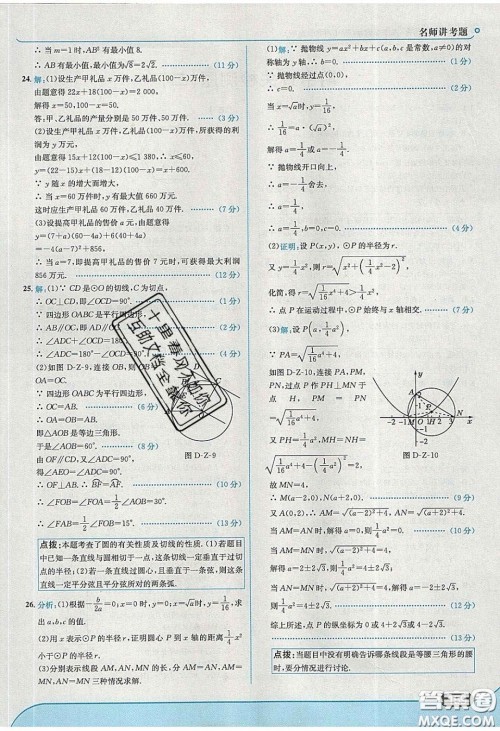 名师讲考题
∴当m=1时,AB²有最小值8.
∴当m=1时,AB有最小值为√8=2√2. (11分)
24.解:(1)设生产甲礼品x万件,乙礼品(100-x)万件,
由题意得22x+18(100-x)=2 000.
解得x=50,100-x=50.
答:甲、乙礼品的产量分别是50万件,50万件. (3分)
(2)设生产甲礼品x万件,乙礼品(100-x)万件,所获得的利
润为y万元,
由题意得15x+12(100-x)≤1 380,∴x≤60,
y=(22-15)x+(18-12)(100-x)=x+600.
∵y随x的增大而增大,
∴当x=60万件时,y有最大值660万元.
这时应生产甲礼品60万件,乙礼品40万件. (7分)
(3)设提高甲礼品的售价a元,由题意得
y=(7+a)(60-4a)+6(40+4a)
=-4(a-7)²+856,
∴当a=7,即提高甲礼品的售价7元时,可获得最大利润
856万元. (12分)
25.解:(1)∵CD是⊙O的切线,C为切点,
∴OC⊥CD,即∠OCD=90°.
∵四边形OABC是平行四边形,
∴AB∥OC,即AD∥OC. (4分)
∴∠ADC+∠OCD=180°.
∴∠ADC=90°.
(2)如图D-Z-9,连接OB,则OB=
OA=OC.
∵四边形OABC为平行四边形,
∴OC=AB.
∴OA=OB=AB. (6分)
即△AOB是等边三角形.
于是∠AOB=60°. (8分)
由OF∥CD,又∠ADC=90°,
得∠AEO=∠ADC=90°.
∴OF⊥AB.∴BF=AF. (10分)
∴∠FOB=∠FOA=1/2∠AOB=30°.
∴∠FAB=1/2∠FOB=15°. (13分)
图D-Z-9
点拨:本题考查了圆的有关性质及切线的性质.(1)若题
目中已知一条直线与圆相切于一点,这条直线一定垂直于过切
点的半径;(2)若一条直线过圆心且垂直于一条弦,则这条
直线一定平分弦且平分弦所对的两条弧.
26.分析:(1)根据-b/2a=0;x=0时,y=0;x=√a时,y=1/16,求
出a,b,c的值.
(2)用x表示⊙P的半径r,证明圆心P到x轴的距离小于⊙P
的半径r.
(3)分别表示线段AM,AN,MN的长,分AM=AN,AM=
MN,AN=MN三种情况求解.
(1)解:∵抛物线y=ax²+bx+c(a,b,c是常数,a≠0)的对
称轴为y轴,∴b=0. (1分)
∵抛物线经过点(0,0),
∴c=0. (2分)
∴y=ax².
当x=√a时,y=1/16,
∴1/16=a·(√a)².
解得a=1/4或a=-1/4.
∵抛物线开口向上,
∴a=-1/4舍去,
∴a=1/4.
∴a=1/4,b=0,c=0. (4分)
(2)证明:设P(x,y),⊙P的半径为r.
又∵y=1/4x²,则r=√(x²+(1/4x²-2)²),
化简得r=√(1/16x⁴+4)>1/4x².
∴点P在运动过程中,⊙P始终与x轴相交. (7分)
(3)解:设P(a,1/4a²),
∵PA=√(1/16a⁴+4),
如图D-Z-10,连接PA,PM,
PN,过点P作PH⊥MN于
点H,则PM=PN=
√(1/16a⁴+4).
又∵PH=1/4a²,∴MH=NH=
√(1/16a⁴+4-(1/4a²)²)=2.
故MN=4.
图D-Z-10
∴M(a-2,0),N(a+2,0). (9分)
又A(0,2),∴AM=√((a-2)²+4),AN=√((a+2)²+4).
当AM=AN时,解得a=0,则1/4a²=0.
当AM=MN时,√((a-2)²+4)=4,解得a=2±2√3,
则1/4a²=4±2√3;
当AN=MN时,√((a+2)²+4)=4,解得a=-2±2√3,
则1/4a²=4±2√3. (12分)
综上所述,点P的纵坐标为0或4+2√3或4-2√3. (13分)
点拨:当题目中没有明确告诉哪条线段是等腰三角形的腰
时,要分情况进行讨论.
十里春风不如你
互助文档全靠你
答案圈
MXQE.COM